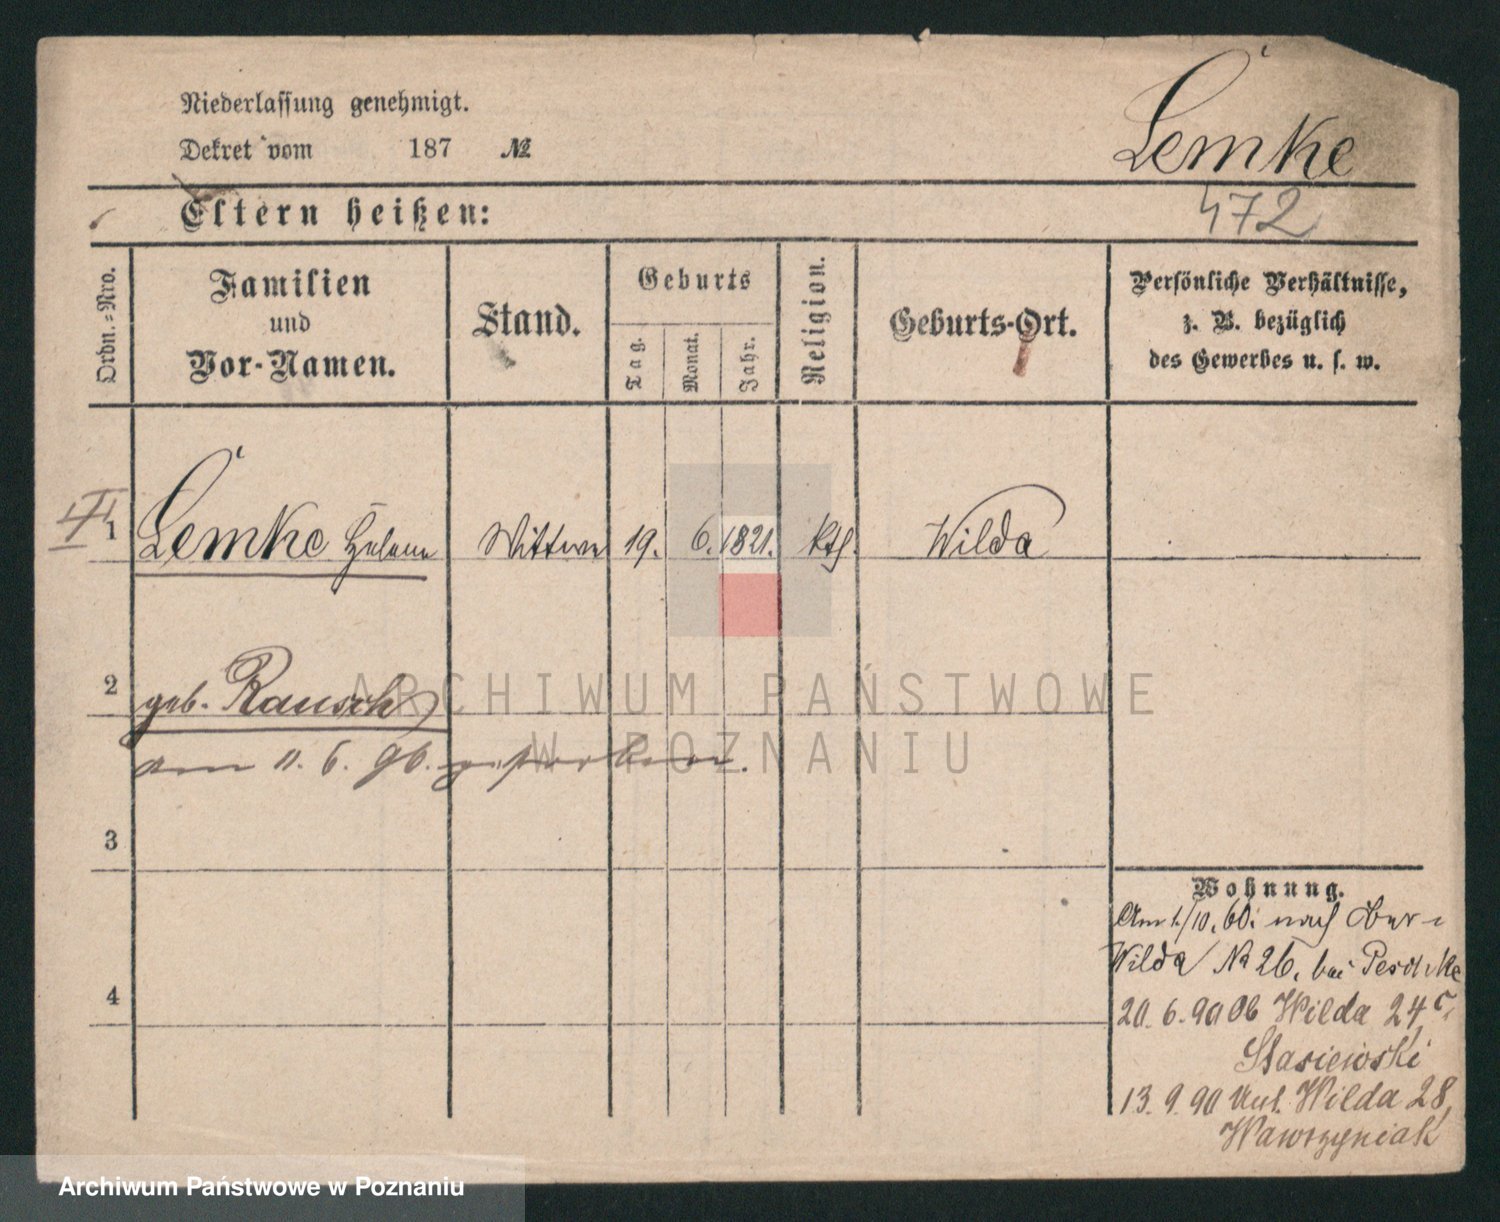 Niederlassung genehmigt.
Dekret vom 187 №
Lemke
472
Eltern heißen:
Ordn.=Nro.
Familien
und
Vor-Namen.
Stand.
Geburts
Tag.
Monat.
Jahr.
Religion.
Geburts-Ort.
Persönliche Verhältnisse,
z. B. bezüglich
des Gewerbes u. s. w.
1 Lemke Helena Wittwe 19. 6. 1821. kth. Wilda
2 geb. Rausch
am 11. 6. 96. gestorben.
3
4
Wohnung.
Am 1./10. 60. nach Ober-
Wilda № 26, bei
20. 6. 90 Ob Wilda 24 c,
Stasiewski
13. 9. 90 Unt. Wilda 28,
Wawrzyniak
ARCHIWUM PAŃSTWOWE
W POZNANIU
Archiwum Państwowe w Poznaniu